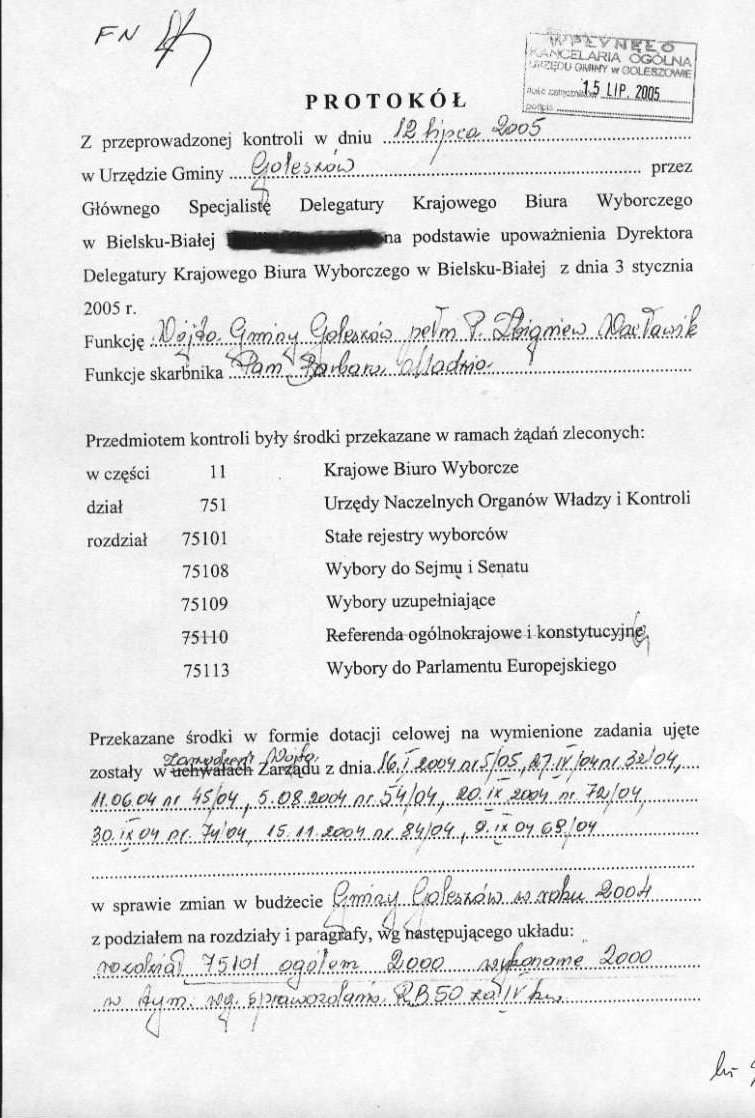 FN
WPŁYNĘŁO
KANCELARIA OGÓLNA
URZĘDU GMINY w GOLESZOWIE
ilość załączników
15 LIP. 2005
podpis
PROTOKÓŁ
Z przeprowadzonej kontroli w dniu 12 lipca 2005
w Urzędzie Gminy Goleszów przez
Głównego Specjalistę Delegatury Krajowego Biura Wyborczego
w Bielsku-Białej na podstawie upoważnienia Dyrektora
Delegatury Krajowego Biura Wyborczego w Bielsku-Białej z dnia 3 stycznia
2005 r.
Funkcję Wójta Gminy Goleszów pełni P. Zbigniew Wacławik
Funkcje skarbnika Pani Barbara
Przedmiotem kontroli były środki przekazane w ramach żądań zleconych:
w części 11 Krajowe Biuro Wyborcze
dział 751 Urzędy Naczelnych Organów Władzy i Kontroli
rozdział 75101 Stałe rejestry wyborców
75108 Wybory do Sejmu i Senatu
75109 Wybory uzupełniające
75110 Referenda ogólnokrajowe i konstytucyjne
75113 Wybory do Parlamentu Europejskiego
Przekazane środki w formie dotacji celowej na wymienione zadania ujęte
Wójta
zostały w uchwałach Zarządu z dnia 16.I 2004 nr 5/05, 27.IV/04 nr 32/04,
11.06.04 nr 45/04, 5.08.2004 nr 54/04, 20.IX 2004 nr 72/04,
30.IX 04 nr 74/04, 15.11.2004 nr 84/04, 9.IX 04 68/04
w sprawie zmian w budżecie Gminy Goleszów w roku 2004
z podziałem na rozdziały i paragrafy, wg następującego układu:
rozdział 75101 ogółem 2000 wykonanie 2000
w tym. wg sprawozdania RB 50 za IV kw.